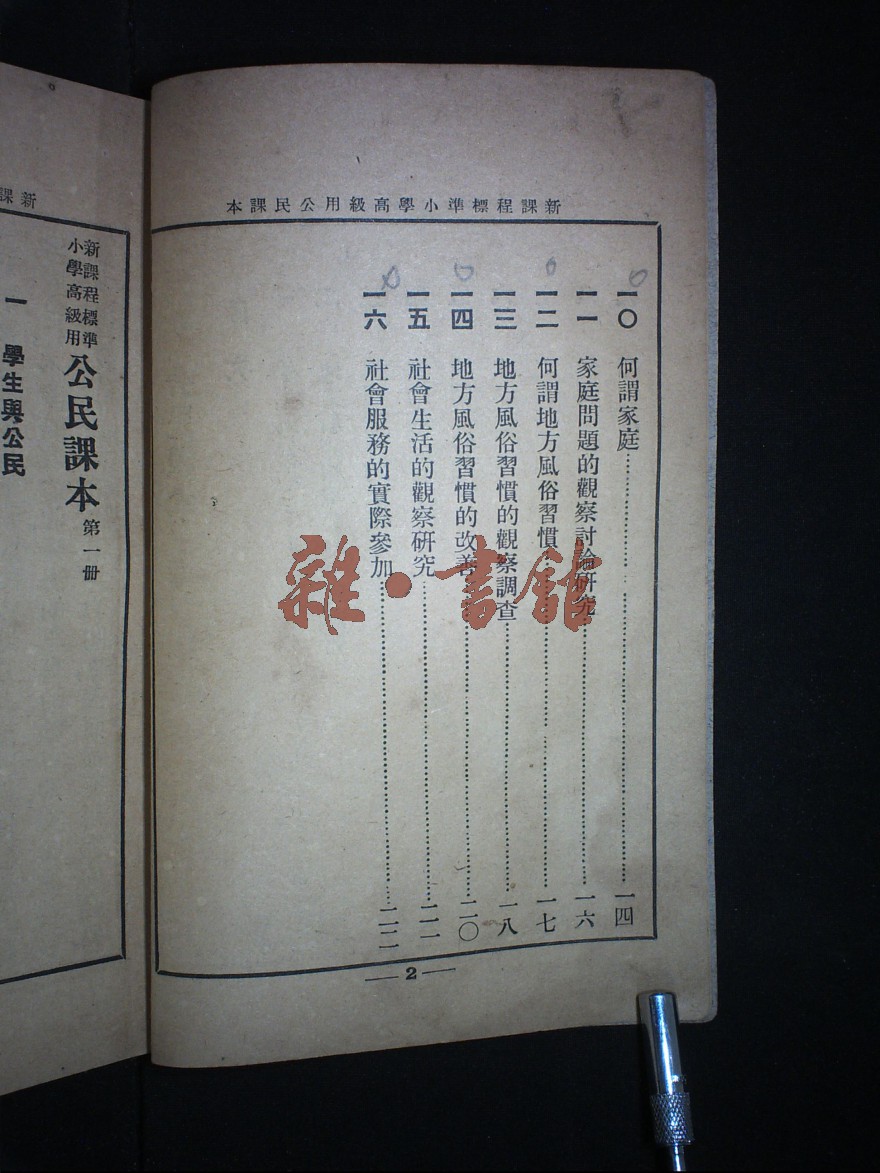 新課程標準小學高級用公民課本
一〇 何謂家庭 一四
一一 家庭問題的觀察討論研究 一六
一二 何謂地方風俗習慣 一七
一三 地方風俗習慣的觀察調查 一八
一四 地方風俗習慣的改善 二〇
一五 社會生活的觀察研究 二一
一六 社會服務的實際參加 二二
2
雜·書館
新課
新課程標準
小學高級用
公民課本 第一冊
一 學生與公民